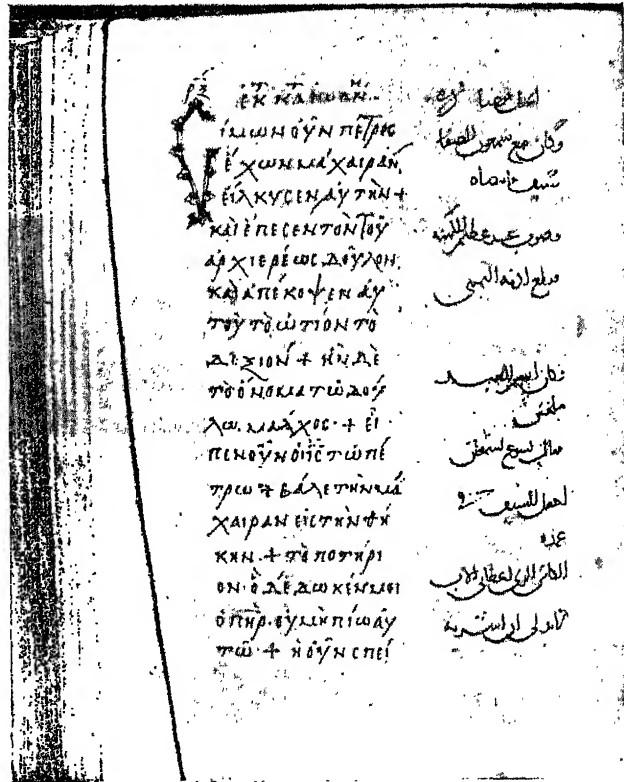 ίμων οὖν πέτρος
έχων μάχαιραν,
εἵλκυσεν αὐτὴν +
καὶ ἔπεσεν τὸν τοῦ
ἀρχιερέως δοῦλον,
καὶ ἀπέκοψεν αὐ
τοῦ τὸ ὠτίον τὸ
δεξιόν + ἦν δὲ
τὸ ὄνομα τῶ δού
λω. μάλχος + εἶ
πεν οὖν ὁ ις τῶ πέ
τρω + βάλε τὴν μά
χαιραν εἰς τὴν θή
κην. + τὸ ποτήρι
ον. ὃ δέδωκέν μοι
ὁ πηρ. οὐ μὴ πίω αὐ
τῶ + ἡ οὖν σπεί
وكان مع شمعون الصفا
سيف
وضرب عبد عظيم الكهنه
وقطع اذنه اليمنى
وكان اسم العبد
فقال يسوع
اجعل السيف في
غمده
الكاس الذي اعطاني الاب
ان اشربه